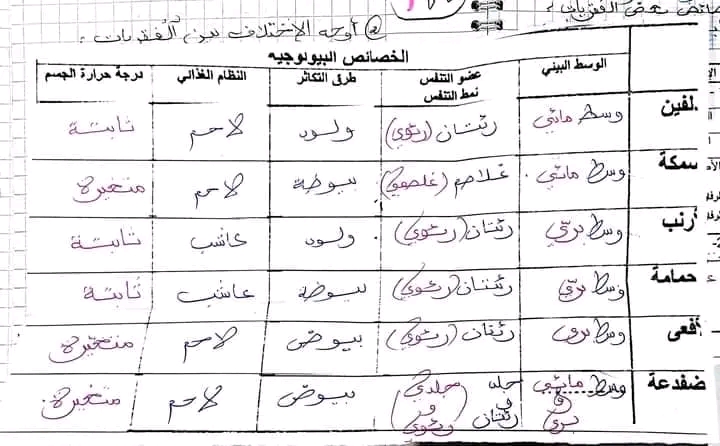 خصائص بعض الفقريات :
② أوجه الإختلاف بين الفقريات :
الخصائص البيولوجيه
الوسط البيئي | عضو التنفس نمط التنفس | طرق التكاثر | النظام الغذائي | درجة حرارة الجسم
لفين | وسط مائي | رئتان (رئوي) | ولود | لاحم | ثابتة
سمكة | وسط مائي . | غلاصم (غلصمي) | بيوضة | لاحم | متغيرة
أرنب | وسط برّي | رئتان (رئوي) . | ولود | عاشب | ثابتة
حمامة | وسط برّي | رئتان (رئوي) | بيوضة | عاشب | ثابتة
أفعى | وسط بري | رئتان (رئوي) | بيوض | لاحم | متغيرة
ضفدعة | وسط مائي و بري | جلد و رئتان (جلدي و رئوي) | بيوض | لاحم | متغيرة .